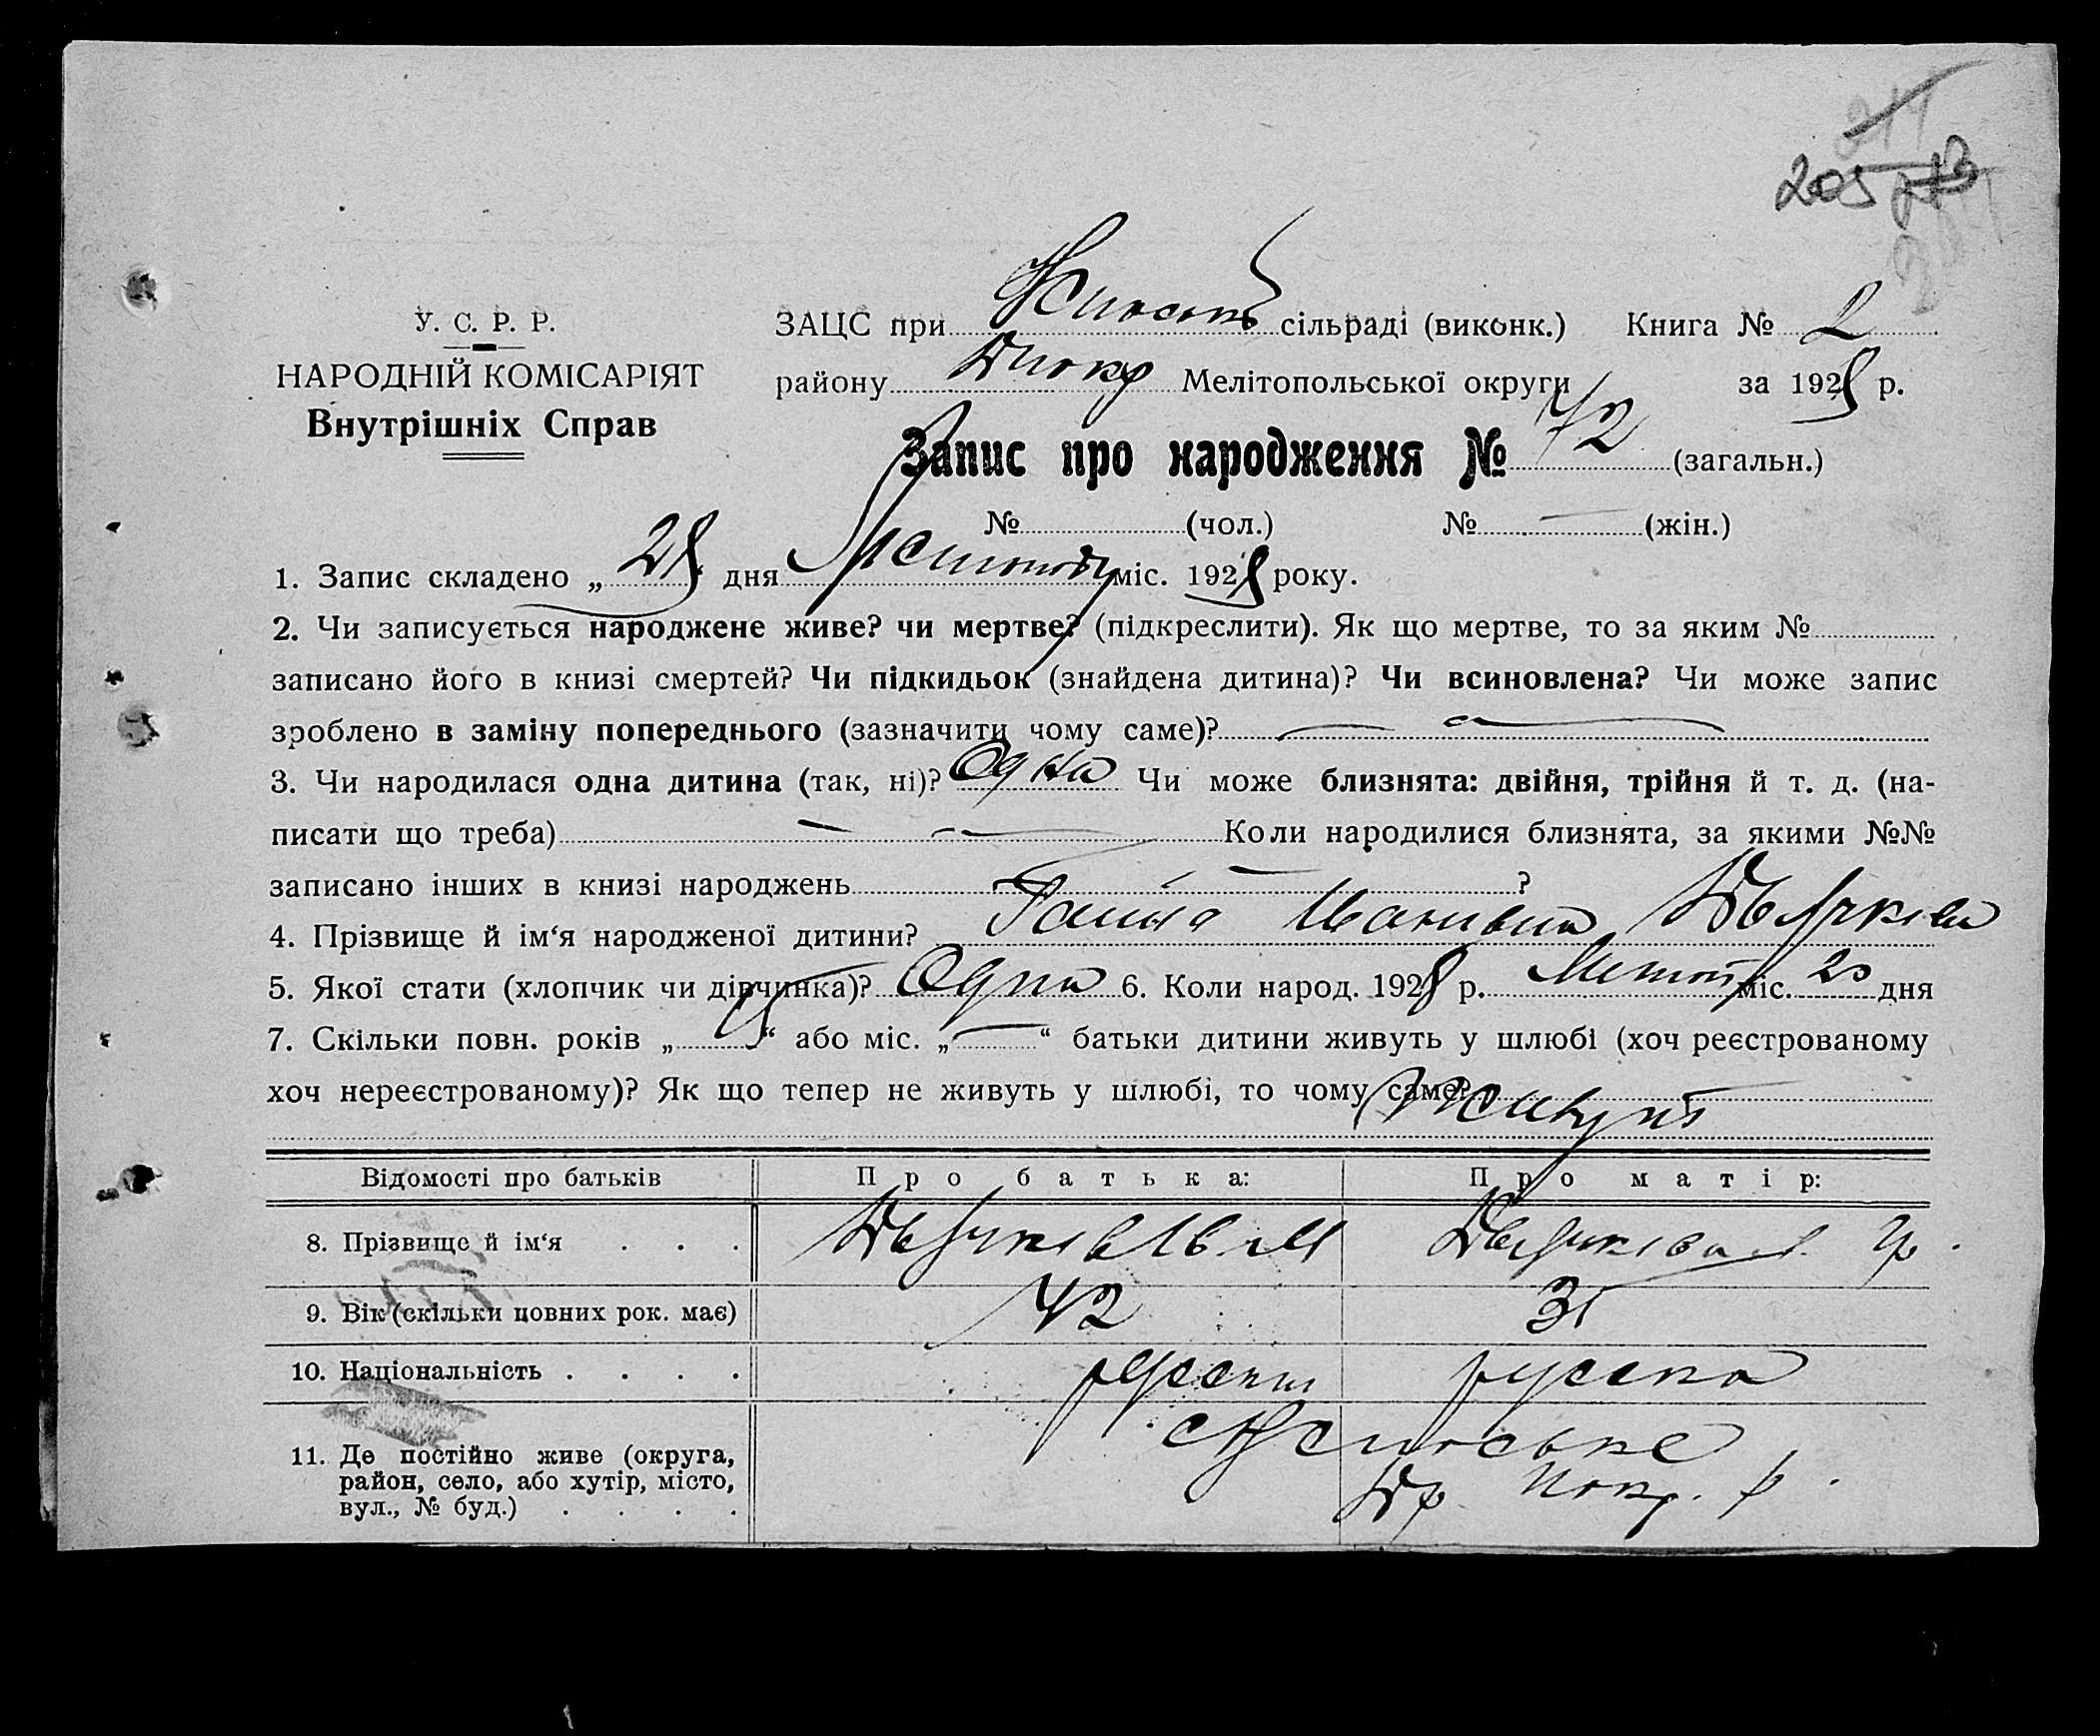 205
У. С. Р. Р.
НАРОДНІЙ КОМІСАРІЯТ
Внутрішніх Справ
ЗАЦС при сільраді (виконк.) Книга № 2
району Мелітопольської округи за 1928 р.
Запис про народження № 72 (загальн.)
№ (чол.) № — (жін.)
1. Запис складено „ 28 " дня міс. 1928 року.
2. Чи записується народжене живе? чи мертве? (підкреслити). Як що мертве, то за яким №
записано його в книзі смертей? Чи підкидьок (знайдена дитина)? Чи всиновлена? Чи може запис
зроблено в заміну попереднього (зазначити чому саме)? — —
3. Чи народилася одна дитина (так, ні)? Одна Чи може близнята: двійня, трійня й т. д. (на-
писати що треба) — — Коли народилися близнята, за якими №№
записано інших в книзі народжень ?
4. Прізвище й ім‘я народженої дитини?
5. Якої стати (хлопчик чи дівчинка)? Одна 6. Коли народ. 1928 р. міс. 20 дня
7. Скільки повн. років „ “ або міс. „ — “ батьки дитини живуть у шлюбі (хоч реєстрованому
хоч нереєстрованому)? Як що тепер не живуть у шлюбі, то чому саме? Живуть
Відомості про батьків Про батька: Про матір:
8. Прізвище й ім‘я . . .
9. Вік (скільки повних рок. має) 42 31
10. Національність . . . . русски русска
11. Де постійно живе (округа,
район, село, або хутір, місто,
вул., № буд.) . . . .